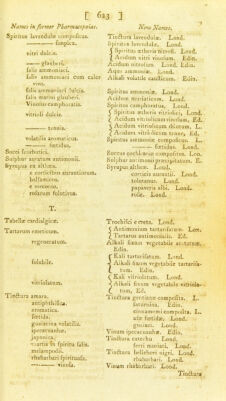 [ 623 ]
Names in former Pharmacopœias. New Names.
Spiritus lavendulæ compositus. Tinctura lavendulæ. Lond.
simplex. Spiritus lavendulæ. Lond.
vitri dulcis. Spiritus ætheris nitrosi. Lond.
Acidum nitri vinosum. Edin.
glauberi. Acidum nitrosum. Lond. Edin.
salis ammoniaci. Aqua ammoniæ. Lond.
salis ammoniaci cum calce viva. Alkali volatile causticum. Edin.
salis ammoniaci dulcis. Spiritus ammoniæ. Lond.
salis marini glauberi. Acidum muriaticum. Lond.
Vinosus camphoratus. Spiritus camphoratus. Lond.
vitrioli dulcis. Spiritus ætheris vitriolici. Lond.
Acidum vitriolicum vinosum. Ed.
tenuis. Acidum vitriolicum dilutum. L.
Acidum vitriolicum tenue, Ed.
volatilis aromaticus. Spiritus ammoniæ compositus. L.
fœtidus. fœtidus. Lond.
Succi scorbutici. Succus cochleariæ compositus. Lo.
Sulphur auratum antimonii. Sulphur antimonii præcipitatum. E.
Syrupus ex althæa. Syrupus altheæ. Lond.
e corticibus aurantiorum. corticis aurantii. Lond.
balsamicus. tolutanus. Lond.
e meconio. papaveris albi. Lond.
rosarum solutivus. rosæ. Lond.
T.
Tabellæ cardialgicæ. Trochisci e creta. Lond.
Tartarum emeticum. Antimonium tartarisatum. Lon.
Tartarus antimonialis. Ed.
regeneratum. Alkali fixum vegetabile acetatum. Edin.
solubile. Kali tartarisatum. Lond.
Alkali fixum vegetabile tartarisatum. Edin.
vitriolatum. Kali vitriolatum. Lond.
Alkali fixum vegetabile vitriolatum, Ed.
Tinctura amara. Tinctura gentianæ composita. L.
antiphthisica. saturnina. Edin.
aromatica. cinnamomi composita. L.
fœtida. asæ fœtidæ. Lond.
guaiacina volatilis. guaiaci. Lond.
ipecacuanhæ. Vinum ipecacuanhæ. Edin.
japonica. Tinctura catechu. Lond.
martis in spiritu salis. ferri muriati. Lond.
melampodii. Tinctura hellebori nigri. Lond.
rhabarbari spirituosa. rhabarbari. Lond.
vinosa. Vinum rhabarbari. Lond.
Tinctura